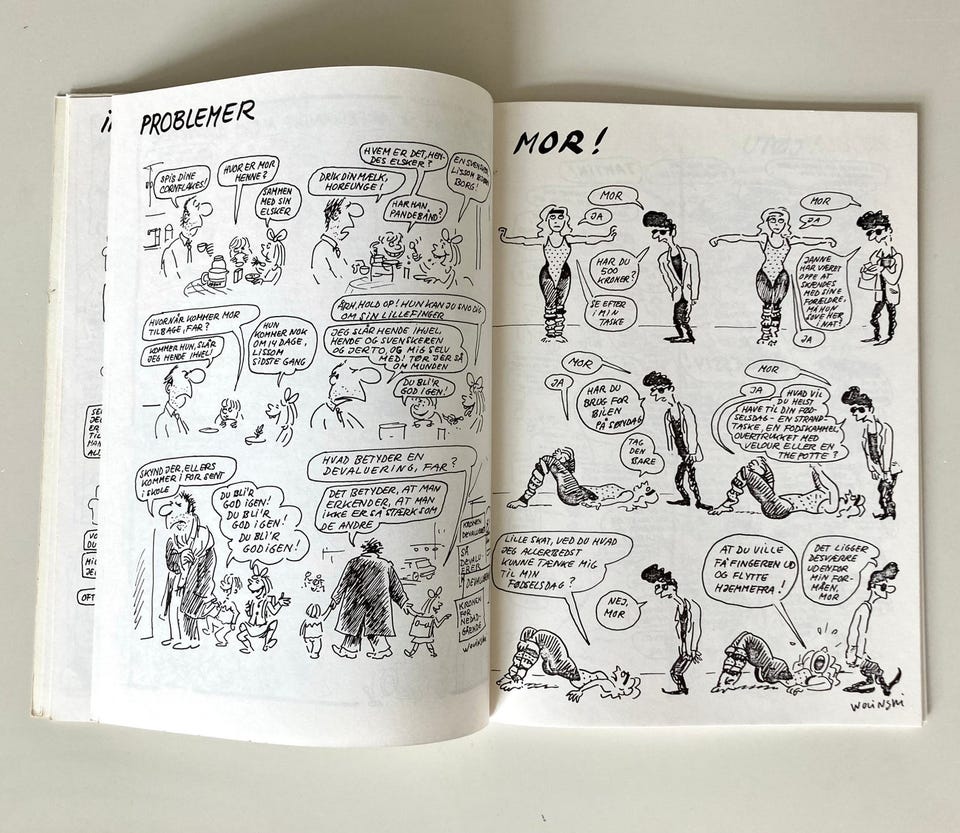 PROBLEMER
SPIS DINE
CORNFLAKES!
HVOR ER MOR
HENNE?
SAMMEN
MED SIN
ELSKER
HVEM ER DET, HEN-
DES ELSKER?
DRIK DIN MÆLK,
HOREUNGE!
HAR HAN
PANDEBÅND?
EN SVENSKER
LISSOM BJÖRN
BORG!
HVORNÅR KOMMER MOR
TILBAGE, FAR?
KOMMER HUN, SLÅR
JEG HENDE IHJEL!
HUN
KOMMER NOK
OM 14 DAGE,
LISSOM
SIDSTE GANG
ÅRH, HOLD OP! HUN KAN JU SNO DIG
OM SIN LILLEFINGER
JEG SLÅR HENDE IHJEL,
HENDE OG SVENSKEREN
OG JER TO, OG MIG SELV
MED! TØR JER SÅ
OM MUNDEN
DU BLI'R
GOD IGEN!
SKYND JER, ELLERS
KOMMER I FOR SENT
I SKOLE
DU BLI'R
GOD IGEN!
DU BLI'R
GOD IGEN!
DU BLI'R
GOD IGEN!
HVAD BETYDER EN
DEVALUERING, FAR?
DET BETYDER, AT MAN
ERKENDER, AT MAN
IKKE ER SÅ STÆRK SOM
DE ANDRE
KRONEN
DEVALUERET
SÅ
DEVALU-
ERER
DEVALUERER
KRONEN
FOR
NEDAD-
GÅENDE
WOLINSKI
MOR!
MOR
JA
HAR DU
500
KRONER?
SE EFTER
I MIN
TASKE
MOR
JA
JANNE
HAR VÆRET
OPPE AT
SKÆNDES
MED SINE
FORÆLDRE,
MÅ HUN
SOVE HER
I NAT?
JA
MOR
JA
HAR DU
BRUG FOR
BILEN
PÅ SØNDAG?
TAG
DEN
BARE
MOR
JA
HVAD VIL
DU HELST
HAVE TIL DIN FØD-
SELSDAG - EN STRAND-
TASKE, EN FODSKAMMEL
OVERTRUKKET MED
VELOUR ELLER EN
THEPOTTE?
LILLE SKAT, VED DU HVAD
JEG ALLERBEDST
KUNNE TÆNKE MIG
TIL MIN
FØDSELSDAG?
NEJ,
MOR
AT DU VILLE
FÅ FINGEREN UD
OG FLYTTE
HJEMMEFRA!
DET LIGGER
DESVÆRRE
UDENFOR
MIN FOR-
MÅEN,
MOR
WOLINSKI